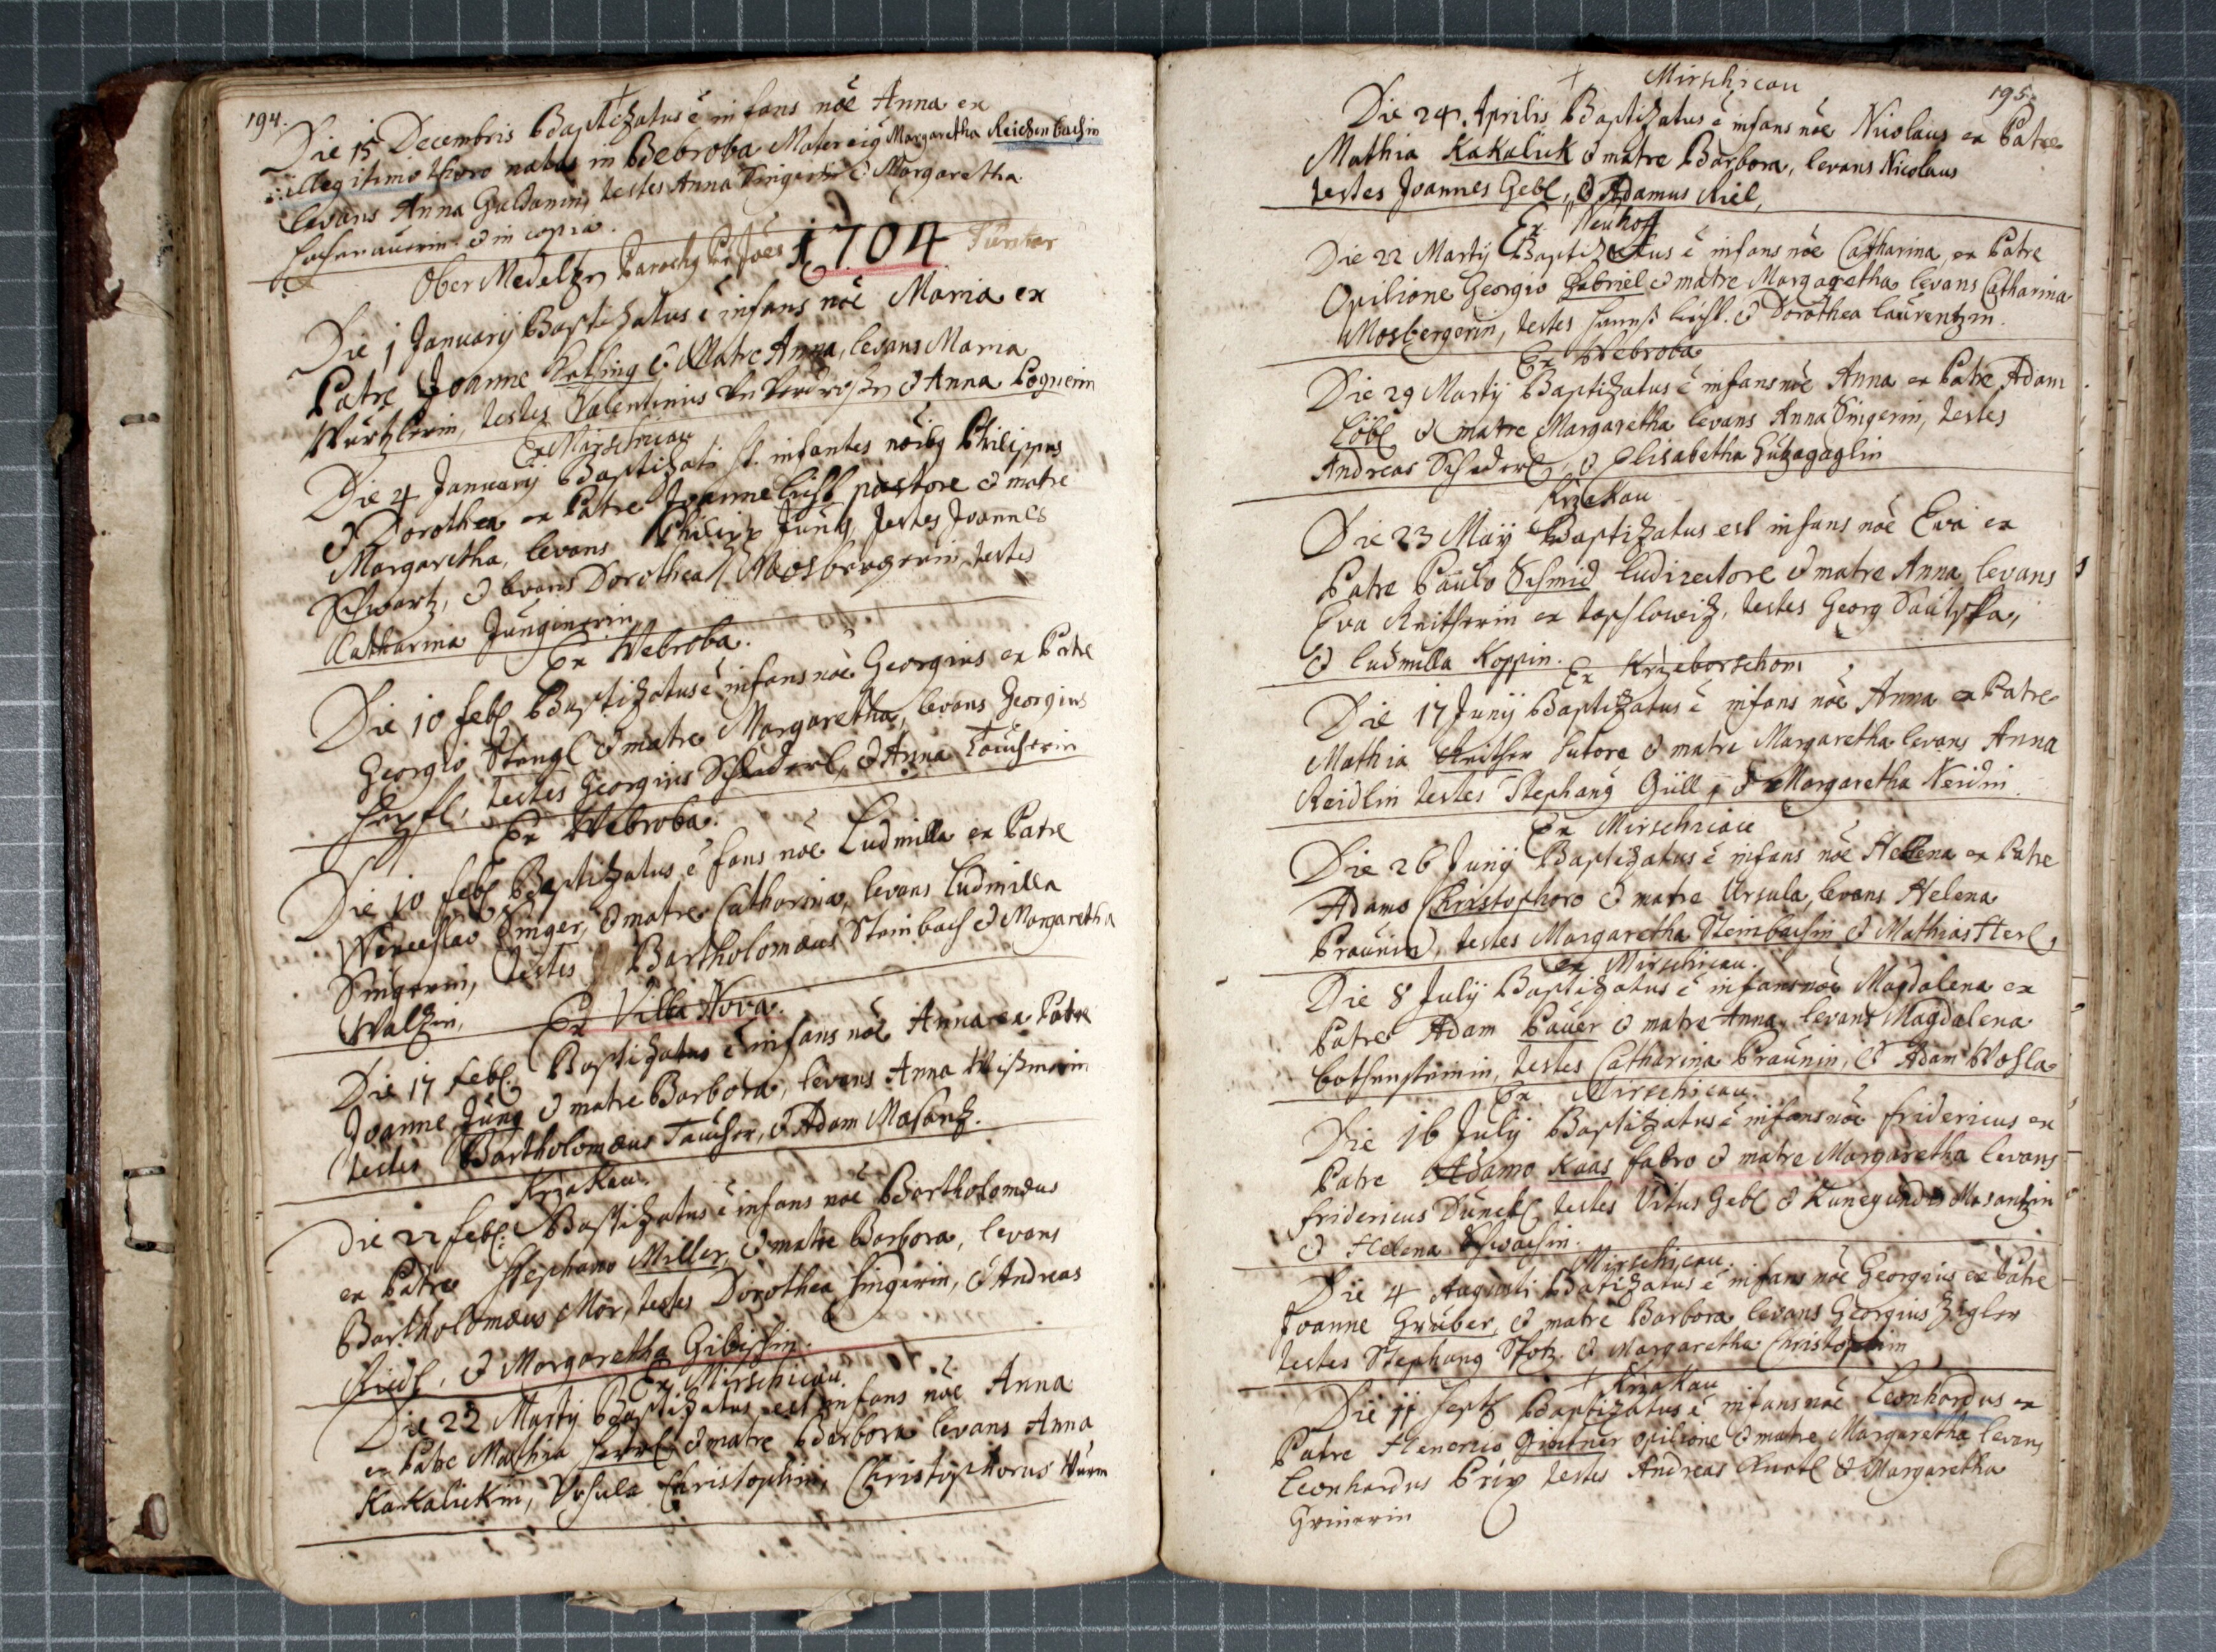 194.
Die 15 Decembris Baptizatus ē infans nõe Anna ex
illegitimo thoro natus in Webroba Mater eiq Margaretha Reichenbachin
levans Anna testes Anna Singerin & Margaretha
& in copia.
Ober Medeltzn Parochq 1704
Die 1 January Baptizatus ē infans nõe Maria ex
Patre Joanne & Matre Anna, levans Maria
Würtzlerin, testes Valentinus & Anna Pognerin
Ex Mirschicau
Die 4 January Baptizati st. infantes nõibq Philippus
& Dorothea ex Patre Joanne pastore & matre
Margaretha, levans Philipp Jung, testes Joannes
Schwartz, & levans Dorothea Mosbergerin, testes
Catharina Junginerin
Ex Webroba.
Die 10 feb Baptizatus ē infans nõe Georgius ex Patre
Georgio Stengl & matre Margaretha, levans Georgius
testes Georgius Schederl, & Anna Taucherin
Ex Webroba.
Die 10 feb Baptizatus ē fans nõe Ludmilla ex Patre
Wenceslao Singer, & matre Catharina, levans Ludmilla
Singerin, testes Bartholomæus Steinbach & Margaretha
Waltzin,
Ex Villa Nova.
Die 17 feb Baptizatus ē infans nõe Anna ex Patre
Joanne Jung & matre Barbora, levans Anna
testes Bartholomæus Taucher, & Adam Masantz.
Krzakau.
Die 22 feb: Baptizatus ē infans nõe Bartholomæus
ex Patre Stephano Miller, & matre Barbora, levans
Bartholomæus Mör, testes Dorothea Singerin, & Andreas
Riedl, & Margaretha
Ex Mirschicau.
Die 22 Martij Baptizatus est infans nõe Anna
ex Patre Mathia & matre Barbora levans Anna
Kakalickin, Ursula Christophin, Christophorus Wurm
Mirschicau
195.
Die 24 Aprilis Baptizatus ē infans nõe Nicolaus ex Patre
Mathia Kakalick & matre Barbora, levans Nicolaus
testes Joannes Gebl, & Adamus Riel,
Ex Neuhoff
Die 22 Martij Baptizatus ē infans nõe Catharina, ex Patre
Opilione Georgio Gabriel & matre Margaretha levans Catharina
Mosbergerin, testes & Dorothea Laurentzin.
Ex Webroba
Die 29 Martij Baptizatus ē infans nõe Anna ex Patre Adam
Löbl & matre Margaretha levans Anna Singerin, testes
Andreas Schederl, & Elisabetha
Krzakau
Die 23 Maij Baptizatus est infans nõe Eva ex
Patre Paulo Schmid ludirectore & matre Anna levans
Eva Reitherin ex testes Georg
& Ludmilla Koppin.
Ex Krzeborschom
Die 17 Junij Baptizatus ē infans nõe Anna ex Patre
Mathia Reither sutore & matre Margaretha levans Anna
Reidlin testes Stephanq Güll, & Margaretha Neidin.
Ex Mirschicau
Die 26 Junij Baptizatus ē infans nõe Hellena ex Patre
Adamo Christophoro & matre Ursula, levans Helena
Praunin, testes Margaretha Steinbachin & Mathias Herl,
ex Mirschicau.
Die 8 Julij Baptizatus ē infans nõe Magdalena ex
Patre Adam Pauer & matre Anna, levans Magdalena
testes Catharina Praunin, & Adam Wohla
Ex Mirschicau.
Die 16 Julij Baptizatus ē infans nõe fridericus ex
Patre Adamo Kaas fabro & matre Margaretha levans
fridericus Dünckl testes Vitus Gebl & Kunegundis Masantzin
& Helena
Mirschicau.
Die 4 Augusti Batizatus ē infans nõe Georgius ex Patre
Joanne Gruber, & matre Barbora levans Georgius Zigler
testes Stephanq & Margaretha Christophin
Krzakau
Die 11 Sept Baptizatus ē infans nõe Leonhardus ex
Patre Henerico opilione & matre Margaretha levans
Leonhardus Prix testes Andreas & Margaretha